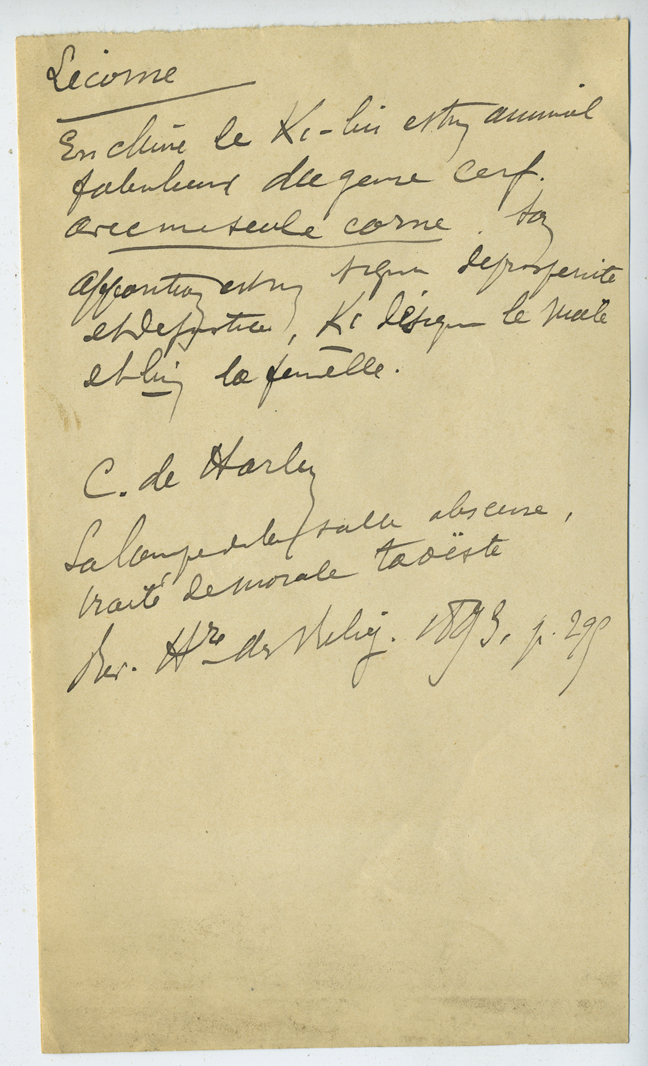 Licorne
En Chine le Ki-lin est un animal
fabuleux du genre cerf.
avec une seule corne. Son
apparition est un signe de prospérité
et de justice, Ki désigne le mâle
et lin la femelle.
C. de Harlez
La lampe de la salle obscure,
traité de morale taoïste
Rev. Hre des Relig. 1893, p.